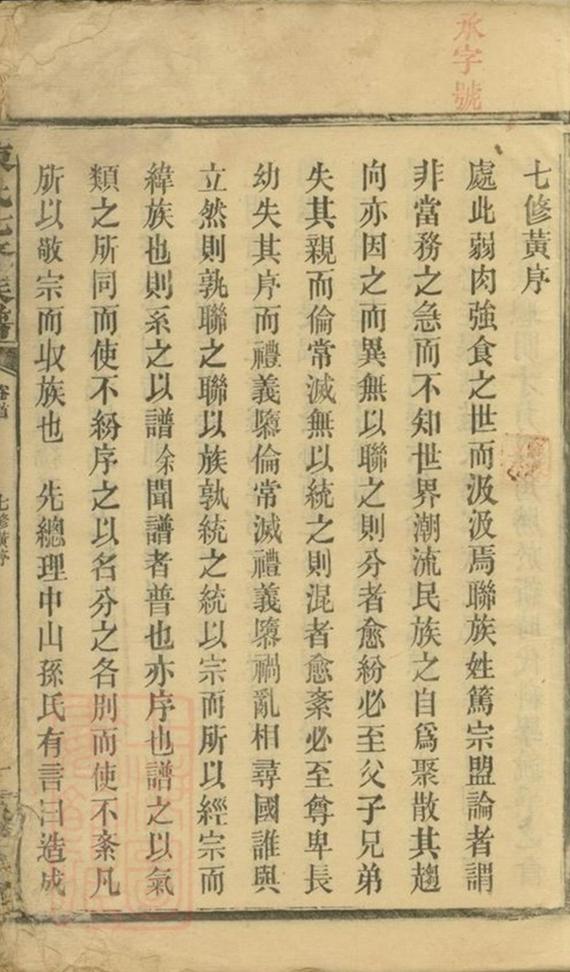 承字號
七修黃序
處此弱肉強食之世而汲汲焉聯族姓篤宗盟論者謂
非當務之急而不知世界潮流民族之自爲聚散其趨
向亦因之而異無以聯之則分者愈紛必至父子兄弟
失其親而倫常滅無以統之則混者愈紊必至尊卑長
幼失其序而禮義隳倫常滅禮義隳禍亂相尋國誰與
立然則孰聯之聯以族孰統之統以宗而所以經宗而
緯族也則系之以譜余聞譜者普也亦序也譜之以氣
類之所同而使不紛序之以名分之各別而使不紊凡
所以敬宗而収族也 先總理中山孫氏有言曰造成
氏七修族譜
卷首
七修黃序